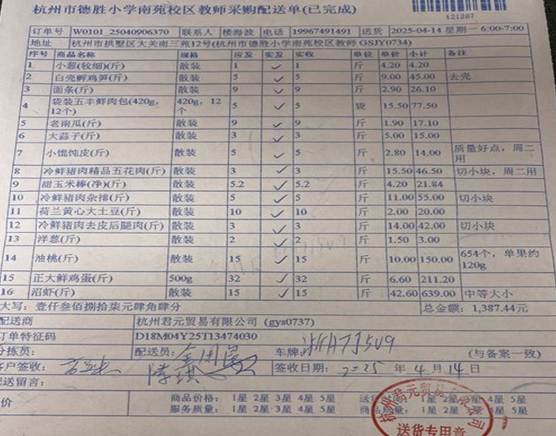 杭州市德胜小学南苑校区教师采购配送单(已完成)
121287
订单号 W0101_25040906370 联系人 楼海波 电话 19967491491 送货 2025-04-14 星期一 6:00-7:00
地址 杭州市拱墅区大关南三苑12号(杭州市德胜小学南苑校区教师 GSJY0734)
序号 商品名称 规格 应发 实发 实收 单位 单价 小计 备注
1 小葱(较细)(斤) 散装 1 ✓ 1 斤 4.20 4.20
2 白壳孵鸡笋(斤) 散装 5 ✓ 5 斤 9.00 45.00 去壳
3 面条(斤) 散装 9 ✓ 9 斤 2.90 26.10
4 袋装五丰鲜肉包(420g,12个) 420g, 12个 5 ✓ 5 袋 15.50 77.50
5 老南瓜(斤) 散装 9 ✓ 9 斤 1.90 17.10
6 大蒜子(斤) 散装 3 ✓ 3 斤 5.00 15.00
7 小馄饨皮(斤) 散装 5 ✓ 5 斤 2.80 14.00 质量好点,周二用
8 冷鲜猪肉精品五花肉(斤) 散装 3 ✓ 3 斤 15.50 46.50 切小块,周二用
9 甜玉米棒(净)(斤) 散装 5.2 ✓ 5.2 斤 4.20 21.84
10 冷鲜猪肉杂排(斤) 散装 5 ✓ 5 斤 11.00 55.00 切小块
11 荷兰黄心大土豆(斤) 散装 10 ✓ 10 斤 2.00 20.00
12 冷鲜猪肉去皮后腿肉(斤) 散装 3 ✓ 3 斤 14.00 42.00 切小块
13 洋葱(斤) 散装 2 ✓ 2 斤 1.50 3.00
14 油桃(斤) 散装 15 ✓ 15 斤 10.00 150.00 654个,单果约120g
15 正大鲜鸡蛋(斤) 500g 32 ✓ 32 斤 6.60 211.20
16 沼虾(斤) 散装 15 ✓ 15 斤 42.60 639.00 中等大小
大写:壹仟叁佰捌拾柒元肆角肆分 总金额:1,387.44元
配送商 杭州君元贸易有限公司 (gys0737)
订单特征码 D18M04Y25T13474030
分拣员: 配送员: 车牌 (与备案一致)
客户签收: 签收日期: 2025 年 4 月 14 日
配送留言:
评价 商品价格: 1星 2星 3星 4星 5星
服务质量: 1星 2星 3星 4星 5星
杭州君元贸易有限公司
送货专用章